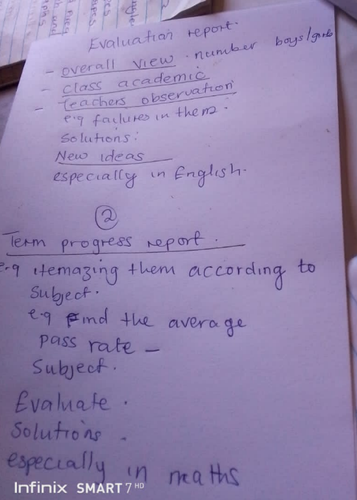 Evaluation report.
- Overall view. number boys/girls
- Class academic
- Teachers observation
e.g failures in them:
Solutions:
New ideas
especially in English.
②
Term progress report.
e.g itemazing them according to
Subject.
e.g find the average
pass rate -
Subject.
Evaluate.
Solutions.
especially in maths
Infinix SMART 7 HD